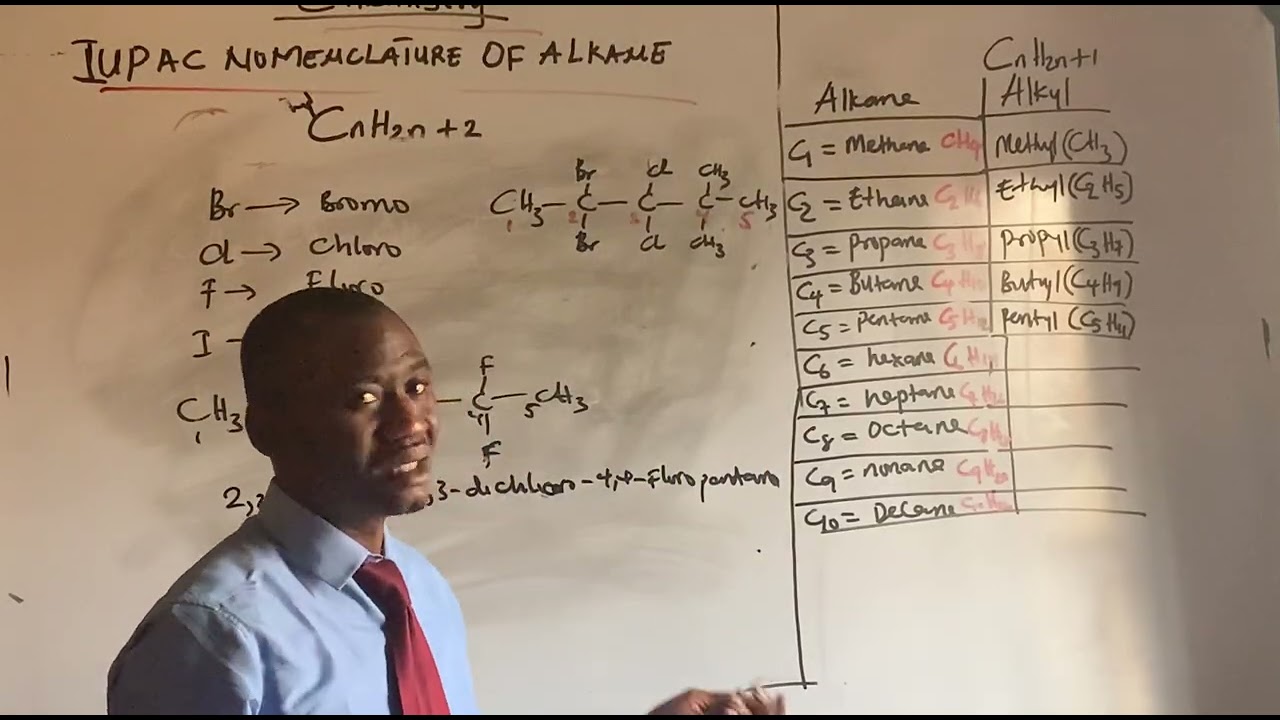 Chemistry
IUPAC NOMENCLATURE OF ALKANE
CnH2n+2
Br → Bromo
Cl → Chloro
F → Fluro
I
Br Cl CH3
CH3–C–C–C–CH3
1 2 3 4 5
Br Cl CH3
F
CH3 –C–CH3
1 4 5
F
2,2 ,3-dichloro-4,4-Fluropentane
CnH2n+1
Alkane Alkyl
C1 = Methane CH4 Methyl (CH3)
C2 = Ethane C2H6 Ethyl (C2H5)
C3 = Propane C3H8 Propyl (C3H7)
C4 = Butane C4H10 Butyl (C4H9)
C5 = Pentane C5H12 Pentyl (C5H11)
C6 = hexane C6H14
C7 = heptane C7H16
C8 = Octane C8H18
C9 = nonane C9H20
C10 = Decane